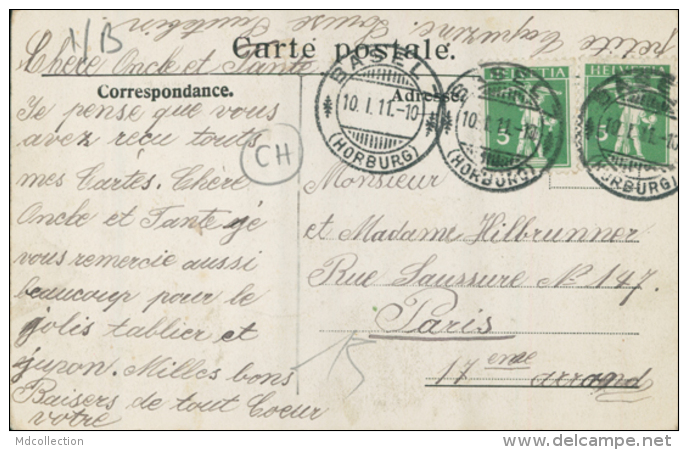 1/B
petite Capucine. Louise
Carte postale.
Chère Oncle et Tante
Correspondance.
Adresse
BASEL 2
10. I. 11.-10
(HORBURG)
BASEL 2
10. I. 11.-10
(HORBURG)
BASEL 2
10. I. 11.-10
(HORBURG)
HELVETIA
5
HELVETIA
5
CH
Je pense que vous
avez réçu touts
mes Cartes. Chère
Oncle et Tante je
vous remercie aussi
beaucoup pour le
jolis tablier et
jupon. Milles bons
Baisers de tout Coeur
votre
Monsieur
et Madame Hilbrunner
Rue Saussure No 147.
Paris
17 eme arrond
Mdcollection
www.delcampe.net